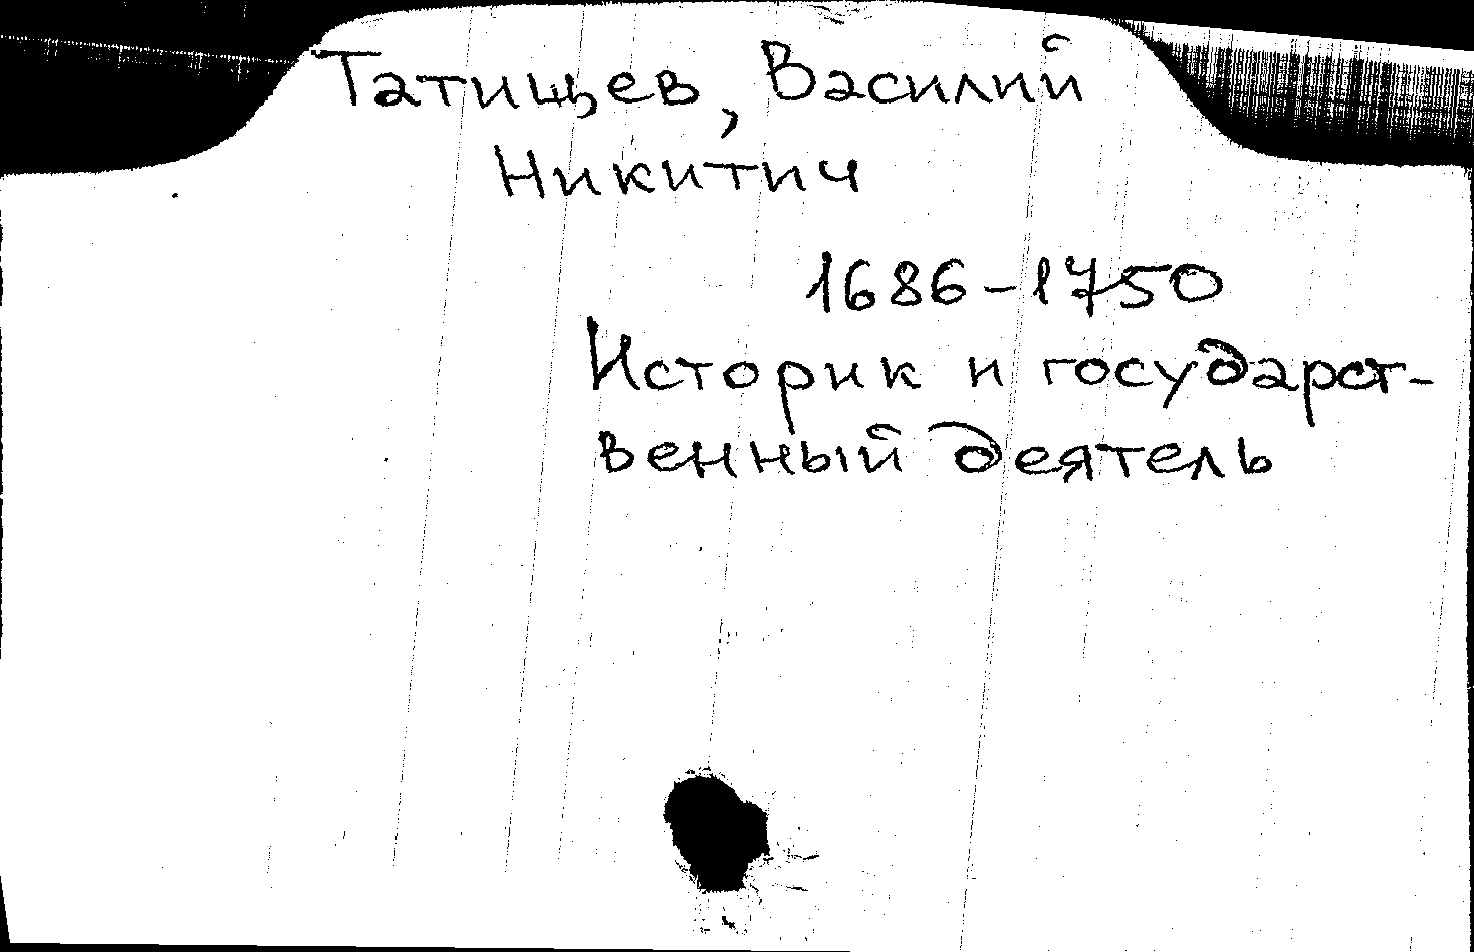 Татищев, Василий
Никитич
1686-1750
Историк и государст-
венный деятель